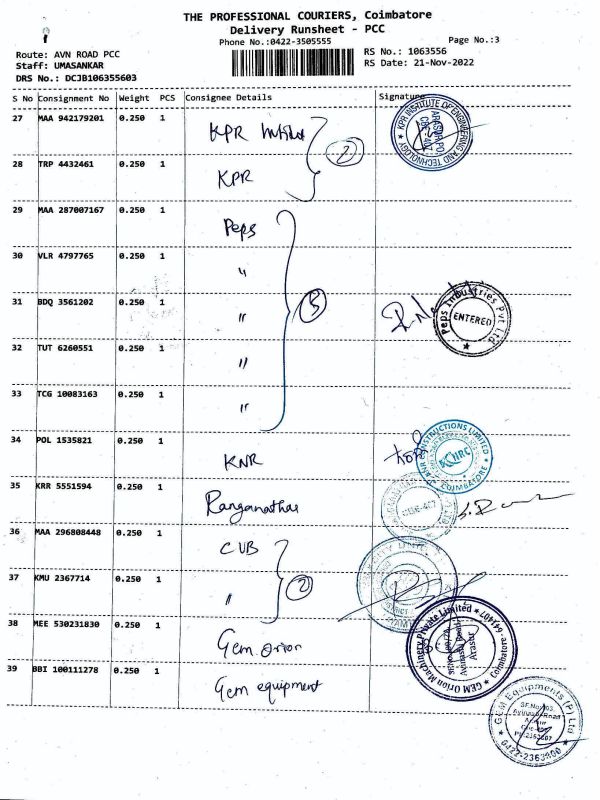 THE PROFESSIONAL COURIERS, Coimbatore
Delivery Runsheet - PCC
Phone No.:0422-3505555
Page No.:3
Route: AVN ROAD PCC
Staff: UMASANKAR
DRS No.: DCJB106355603
RS No.: 1063556
RS Date: 21-Nov-2022
S No Consignment No Weight PCS Consignee Details Signature
27 MAA 942179201 0.250 1 KPR
KPR INSTITUTE OF ENGINEERING AND TECHNOLOGY
28 TRP 4432461 0.250 1 KPR
2
29 MAA 287007167 0.250 1 Peps
30 VLR 4797765 0.250 1 "
31 BDQ 3561202 0.250 1 "
5
Peps Industries Pvt Ltd
ENTERED
32 TUT 6260551 0.250 1 "
33 TCG 10083163 0.250 1 "
34 POL 1535821 0.250 1 KNR
KNR CONSTRUCTIONS LIMITED
COIMBATORE
35 KRR 5551594 0.250 1 Ranganathar
36 MAA 296808448 0.250 1 CUB
37 KMU 2367714 0.250 1 "
2
38 MEE 530231830 0.250 1 Gem orion
GEM Orion Machinery Private Limited
641407
Coimbatore
Avinashi Road
Arasur
39 BBI 100111278 0.250 1 Gem equipment
GEM Equipments (P) Ltd
0422-2363800